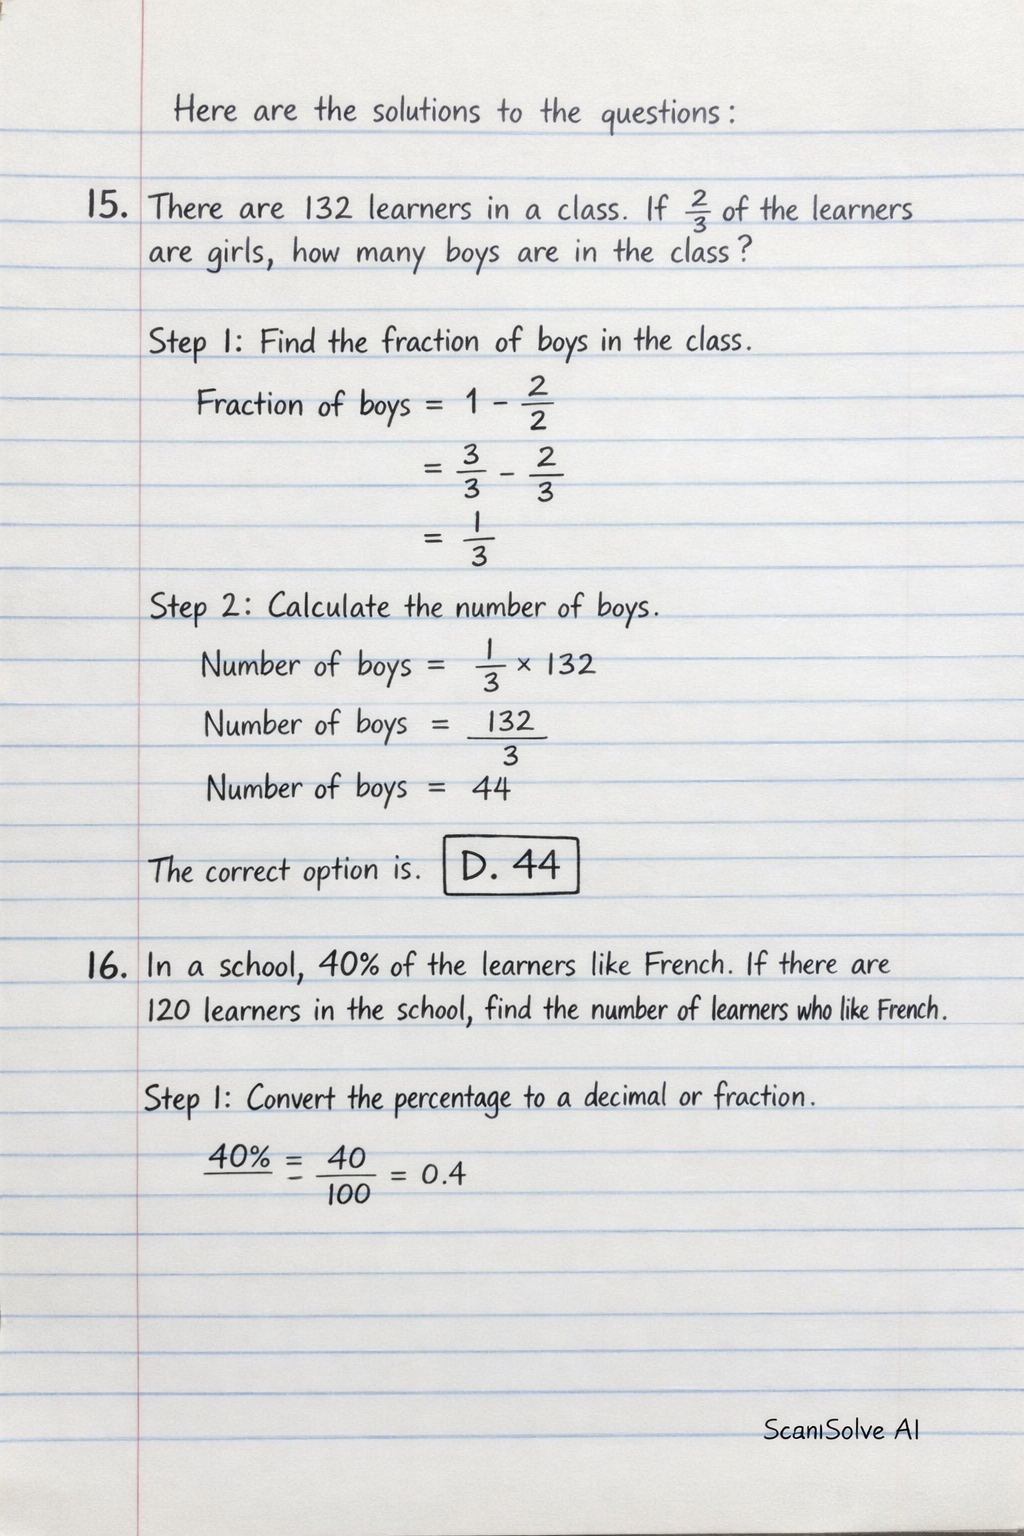 Here are the solutions to the questions:
15. There are 132 learners in a class. If 2/3 of the learners
are girls, how many boys are in the class?
Step 1: Find the fraction of boys in the class.
Fraction of boys = 1 - 2/2
= 3/3 - 2/3
= 1/3
Step 2: Calculate the number of boys.
Number of boys = 1/3 × 132
Number of boys = 132/3
Number of boys = 44
The correct option is. D. 44
16. In a school, 40% of the learners like French. If there are
120 learners in the school, find the number of learners who like French.
Step 1: Convert the percentage to a decimal or fraction.
40% = 40/100 = 0.4
ScanıSolve AI